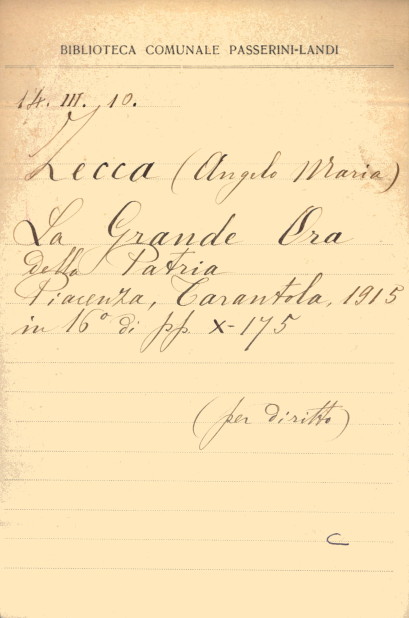 BIBLIOTECA COMUNALE PASSERINI-LANDI
14. III. 10.
Zecca (Angelo Maria)
La Grande Ora
della Patria
Piacenza, Tarantola, 1915
in 16° di pp. X-175
(per diritto)
C